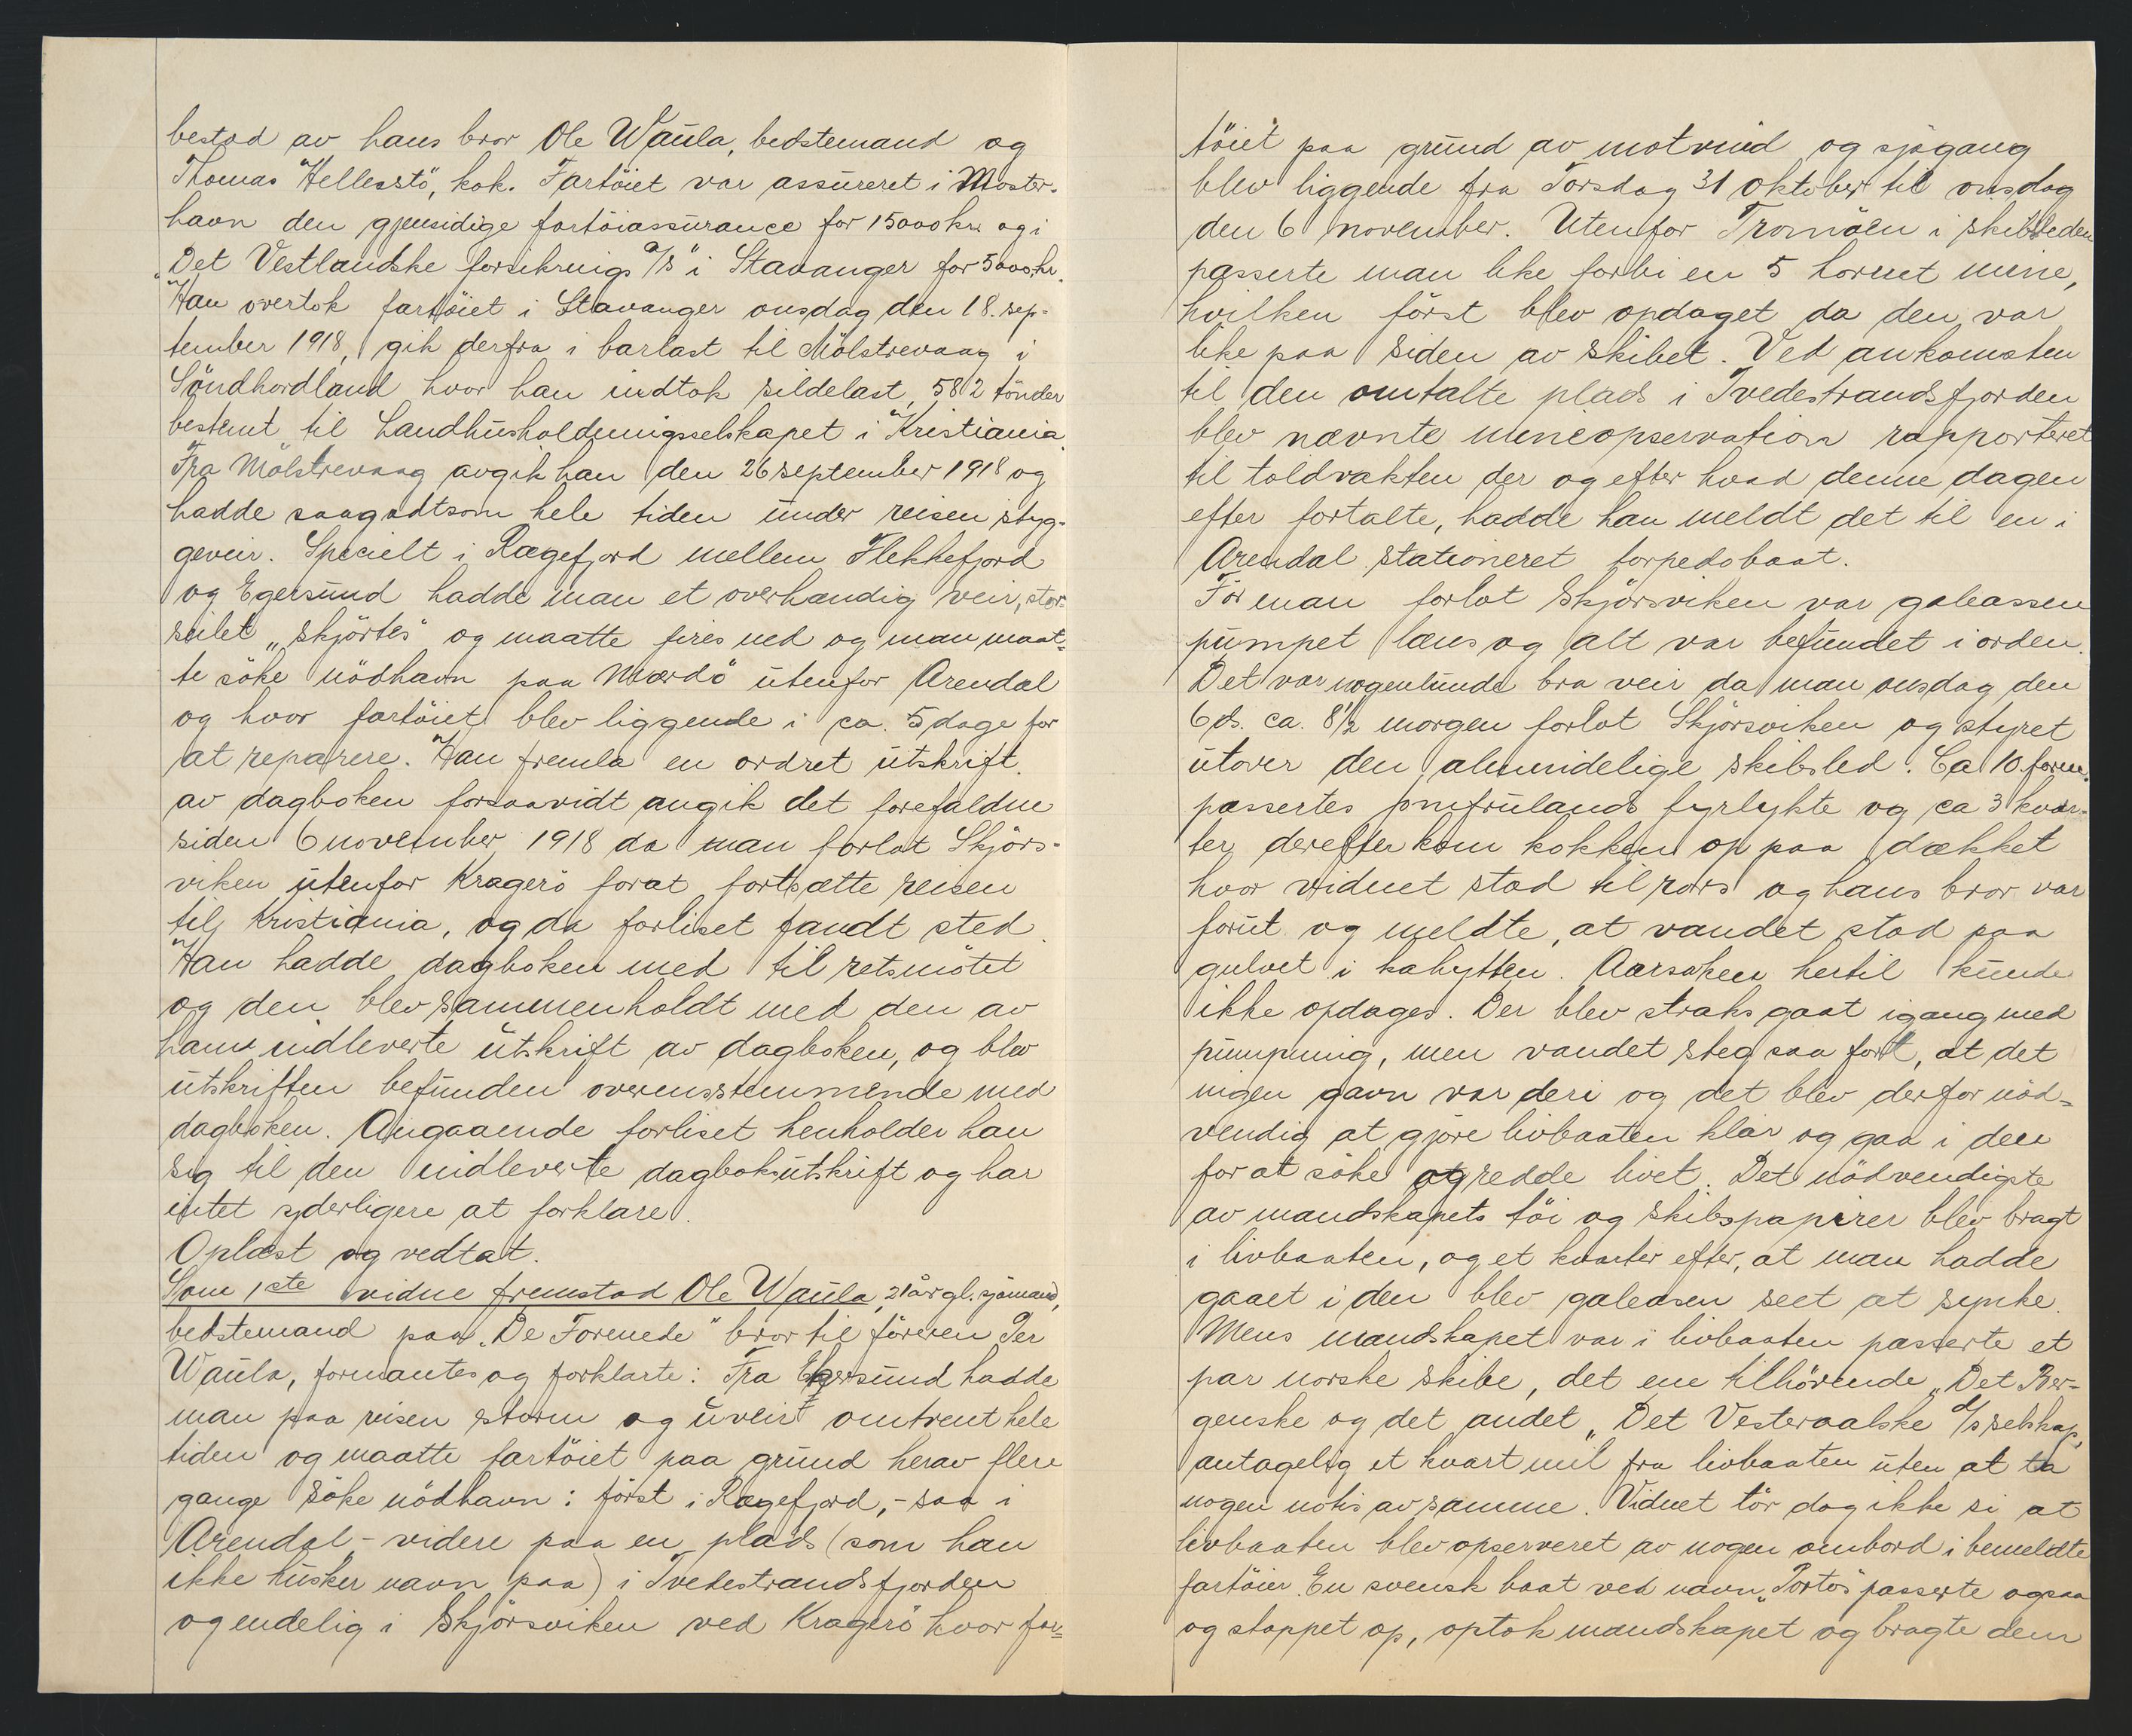 bestod av hans bror Ole Waula, bedstemand og
Thomas Hellesstö, kok. Fartöiet var assureret i Moster-
havn den gjensidige fartöiassurance for 15000 kr. og i
"Det Vestlandske forsikrings A/S" i Stavanger for 5000 kr.
Han overtok fartöiet i Stavanger onsdag den 18. sep-
tember 1918, gik derfra i barlast til Mölstrevaag i
Söndhordland hvor han indtok sildelast, 582 tönder
bestemt til Landhusholdningsselskapet i Kristiania.
Fra Mölstrevaag avgik han den 26 september 1918 og
hadde saagodtsom hele tiden under reisen styg-
geveir. Specielt i Rægefjord mellem Flekkefjord
og Egersund hadde man et overhændig veir, stor-
seilet "skjörtes" og maatte fires ned og man maat-
te söke nödhavn paa Mærdö utenfor Arendal
og hvor fartöiet blev liggende i ca. 5 dage for
at reparere. Han fremla en ordret utskrift
av dagboken forsaavidt angik det forefaldne
siden 6 november 1918 da man forlot Skjörs-
viken utenfor Kragerö forat fortsætte reisen
til Kristiania, og da forliset fandt sted.
Han hadde dagboken med til retsmötet
og den blev sammenholdt med den av
ham indleverte utskrift av dagboken, og blev
utskriften befunden overensstemmende med
dagboken. Angaaende forliset henholder han
sig til den indleverte dagboksutskrift og har
intet yderligere at forklare.
Oplæst og vedtat.
Som 1ste vidne fremstod Ole Waula, 21 år gl. sjömand,
bedstemand paa "De Forenede" bror til föreren Per
Waula, formantes og forklarte: Fra Egersund hadde
man paa reisen storm og uveir omtrent hele
tiden og maatte fartöiet paa grund herav flere
gange söke nödhavn: först i Rægefjord, - saa i
Arendal - videre paa en plads (som han
ikke husker navn paa) i Tvedestrandsfjorden
og endelig i Skjörsviken ved Kragerö hvor far-
töiet paa grund av motvind og sjögang
blev liggende fra Torsdag 31 oktober til onsdag
den 6 november. Utenfor Tromöen i skibsleden
passerte man like forbi en 5 hornet mine,
hvilken först blev opdaget da den var
like paa siden av skibet. Ved ankomsten
til den omtalte plads i Tvedestrandsfjorden
blev nævnte mineopservation rapporteret
til toldvakten der og efter hvad denne dagen
efter fortalte, hadde han meldt det til en i
Arendal stationeret torpedobaat.
För man forlot Skjörsviken var galeassen
pumpet læns og alt var befundet i orden.
Det var nogenlunde bra veir da man onsdag den
6 ds. ca. 8½ morgen forlot Skjörsviken og styret
utover den almindelige skibsled. Ca 10 form.
passertes Jomfrulands fyrlykte og ca 3 kvar-
ter derefter kom kokken op paa dækket
hvor vidnet stod til rors og hans bror var
forut og meldte, at vandet stod paa
gulvet i kahytten. Aarsaken hertil kunde
ikke opdages. Der blev straks gaat igang med
pumpning, men vandet steg saa fort, at det
ingen gavn var deri og det blev derfor nöd-
vendig at gjöre livbaaten klar og gaa i den
for at söke at redde livet. Det nödvendigste
av mandskapets töi og skibspapirer blev bragt
i livbaaten, og et kvarter efter, at man hadde
gaaet i den blev galeasen seet at synke.
Mens mandskapet var i livbaaten passerte et
par norske skibe, det ene tilhörende "Det Ber-
genske og det andet "Det Vesteraalske d/s selskap,
antagelig et kvart mil fra livbaaten uten at ta
nogen notis av samme. Vidnet tör dog ikke si at
livbaaten blev opserveret av nogen ombord i bemeldte
fartöier. En svensk baat ved navn "Portos" passerte ogsaa
og stoppet op, optok mandskapet og bragte dem